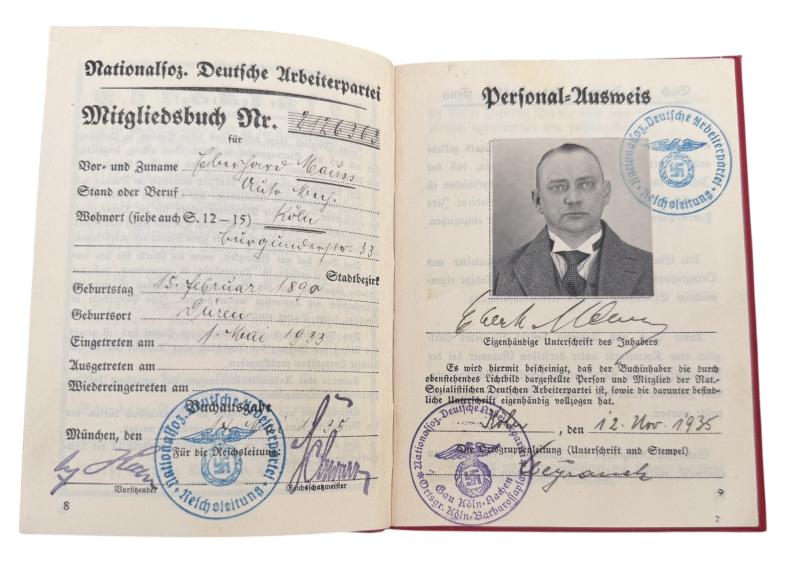 Nationalsoz. Deutsche Arbeiterpartei
Mitgliedsbuch Nr. 2126363
für
Vor- und Zuname Eberhard Mauss
Stand oder Beruf Auto Mech.
Wohnort (siehe auch S. 12–15) Köln
Burgunderstr. 33
Stadtbezirk
Geburtstag 15. Februar 1890
Geburtsort Düren
Eingetreten am 1. Mai 1933
Ausgetreten am
Wiedereingetreten am
Buchausgabe
München, den 35
Für die Reichsleitung
Vorsitzender
Reichsschatzmeister
Nationalsoz. Deutsche Arbeiterpartei
Reichsleitung
8
Personal-Ausweis
Nationalsoz. Deutsche Arbeiterpartei
Reichsleitung
Eigenhändige Unterschrift des Inhabers
Es wird hiermit bescheinigt, daß der Buchinhaber die durch
obenstehendes Lichtbild dargestellte Person und Mitglied der Nat.-
Sozialistischen Deutschen Arbeiterpartei ist, sowie die darunter befind-
liche Unterschrift eigenhändig vollzogen hat.
Köln, den 12. Nov. 1935
Die Ortsgruppenleitung (Unterschrift und Stempel)
Nationalsoz. Deutsche Arbeiterpartei
Gau Köln-Aachen
Ortsgr. Köln-Barbarossaplatz
9
2